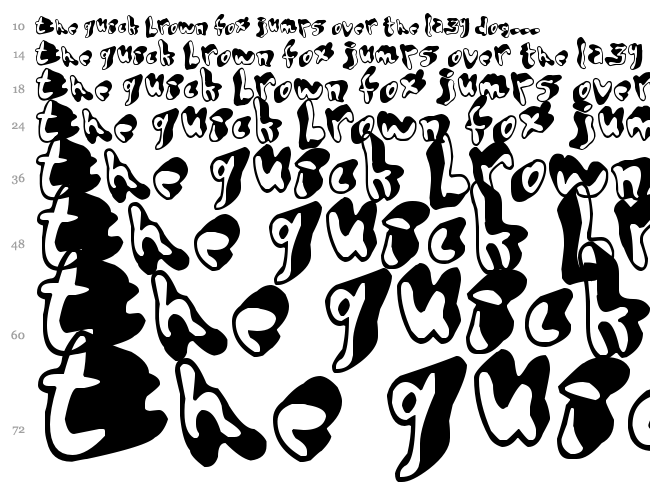 10 the quick brown fox jumps over the lazy dog...
14 the quick brown fox jumps over the lazy
18 the quick brown fox jumps over
24 the quick brown fox jum
36 the quick brown
48 the quick br
60 the quick
72 the quic